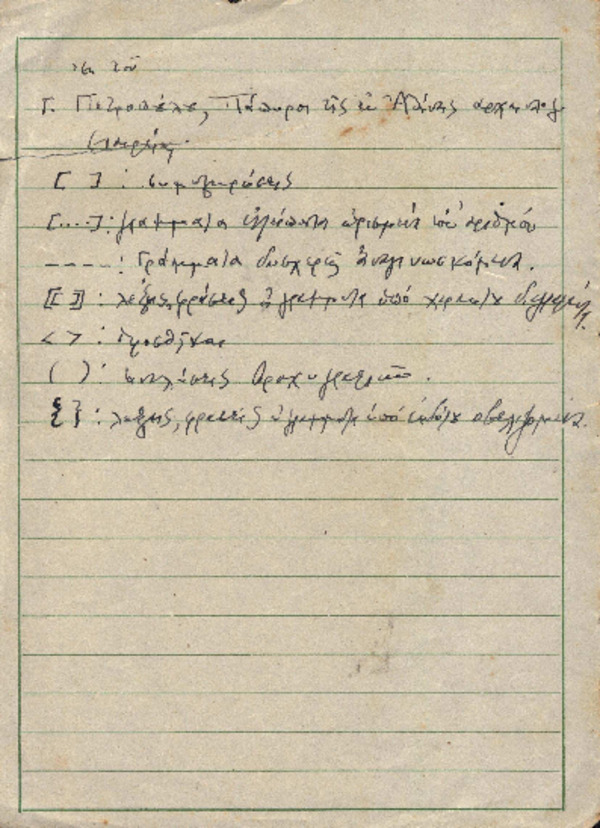 ἐκ τοῦ
Γ. Πετροπούλου, Πάπυροι τῆς ἐν Ἀθήναις ἀρχαιολογ.
ἑταιρείας.
[ ] : συμπληρώσεις
[....] : γράμματα ἐλλείποντα ὡρισμένου ἀριθμοῦ
---- : Γράμματα δυσχερῶς ἀναγινωσκόμενα.
[[ ]] : λέξεις, φράσεις ἢ γράμματα ὑπὸ γραφέως
< > : προσθῆκαι
( ) : ἀναλύσεις βραχυγραφιῶν.
{ } : λέξεις, φράσεις ἢ γράμματα ὑπὸ ἐκδότου ὀβελιζόμενα.